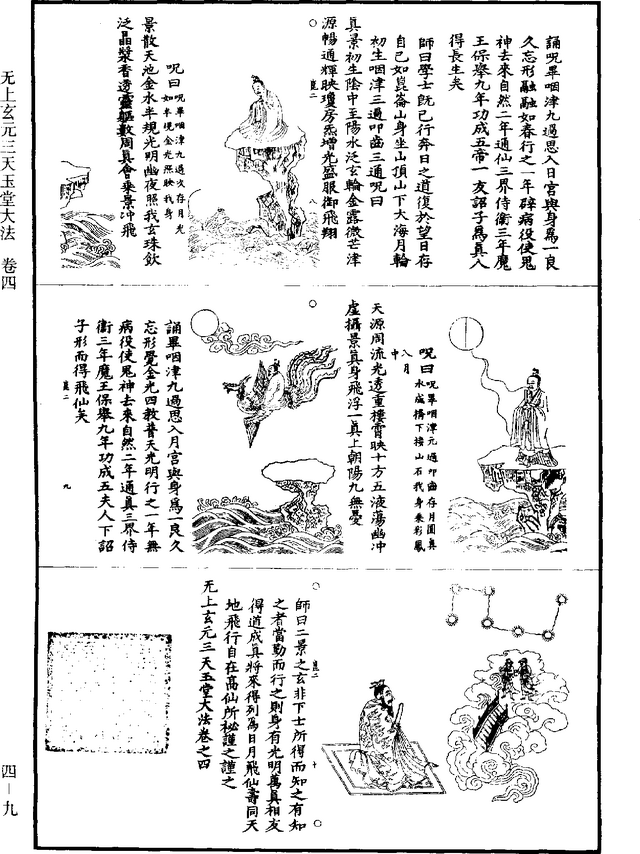 无上玄元三天玉堂大法　卷四
四－九
誦呪畢咽津九過思入日宮與身為一良
久忘形融融如春行之一年辟病役使鬼
神去來自然二年通仙三界侍衛三年魔
王保舉九年功成五帝一友詔子為真人
得長生矣
師曰學士既已行奔日之道復於望日存
自己如崑崙山身坐山頂山下大海月輪
初生咽津三過叩齒三通呪曰
真景初生陰中至陽水泛玄輪金露微芒津
源暢通輝映瓊房炁增光盛服御飛翔
呪曰
呪畢咽津九過次存月光
如半規金光照映我身
景散天池金水半規光明幽夜照我玄珠飲
泛晶漿香透靈軀數周真會乘景冲飛
呪曰
呪畢咽津九過叩齒存月圓真
水成橋下接山石我身乘彩鳳
八月
中
天源周流光透重樓霄映十方五液蕩幽冲
虛攝景真身飛浮一真上朝陽九無憂
誦畢咽津九過思入月宮與身為一良久
忘形覺金光四散普天光明行之一年無
病役使鬼神去來自然二年通真三界侍
衛三年魔王保舉九年功成五夫人下詔
子形而得飛仙矣
九
師曰二景之玄非下士所得而知之有知
之者當勤而行之則身有光明萬真相友
得道成真將來得列為日月飛仙壽同天
地飛行自在高仙所祕謹之謹之
无上玄元三天玉堂大法卷之四
十